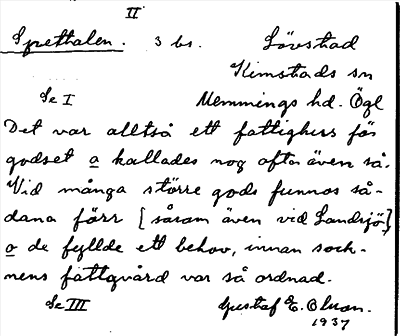 II
Spettalen. 3 bs. Lövstad
Kimstads sn
Se I Memmings hd. Ögl
Det var alltså ett fattighus för
godset o kallades nog ofta även så.
Vid många större gods funnos så-
dana förr [såsom även vid Landsjö]
o de fyllde ett behov, innan sock-
nens fattigvård var så ordnad.
Se III Gustaf E. Olsson.
1937